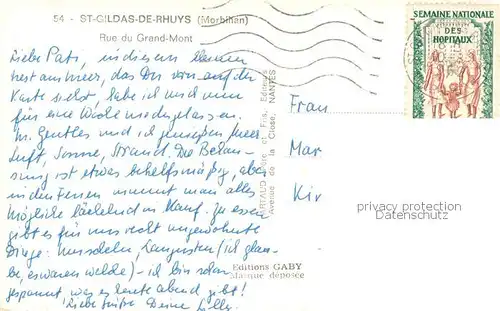 54 - ST-GILDAS-DE-RHUYS (Morbihan)
Rue du Grand-Mont
SEMAINE NATIONALE
DES
HOPITAUX
Liebe Pats, in diesem kleinen
Nest am Meer, das Du vorn auf der
Karte siehst, habe ich mich nun
für eine Woche niedergelassen.
M. Gentles und ich genießen Meer,
Luft, Sonne, Strand. Die Behau-
sung ist etwas behelfsmäßig, aber
in den Ferien nimmt man alles
Mögliche lächelnd in Kauf. Zu essen
gibt es für uns recht ungewohnte
Dinge: Muscheln, Langusten (ich glau-
be, es waren welche) - ich bin schon
gespannt, was es heute abend gibt!
Liebe Grüße Deine
Frau
Mar
Kir
ARTAUD Père et Fils, Editeurs
Avenue de la Close, NANTES
Editions GABY
Marque déposée
privacy protection
Datenschutz